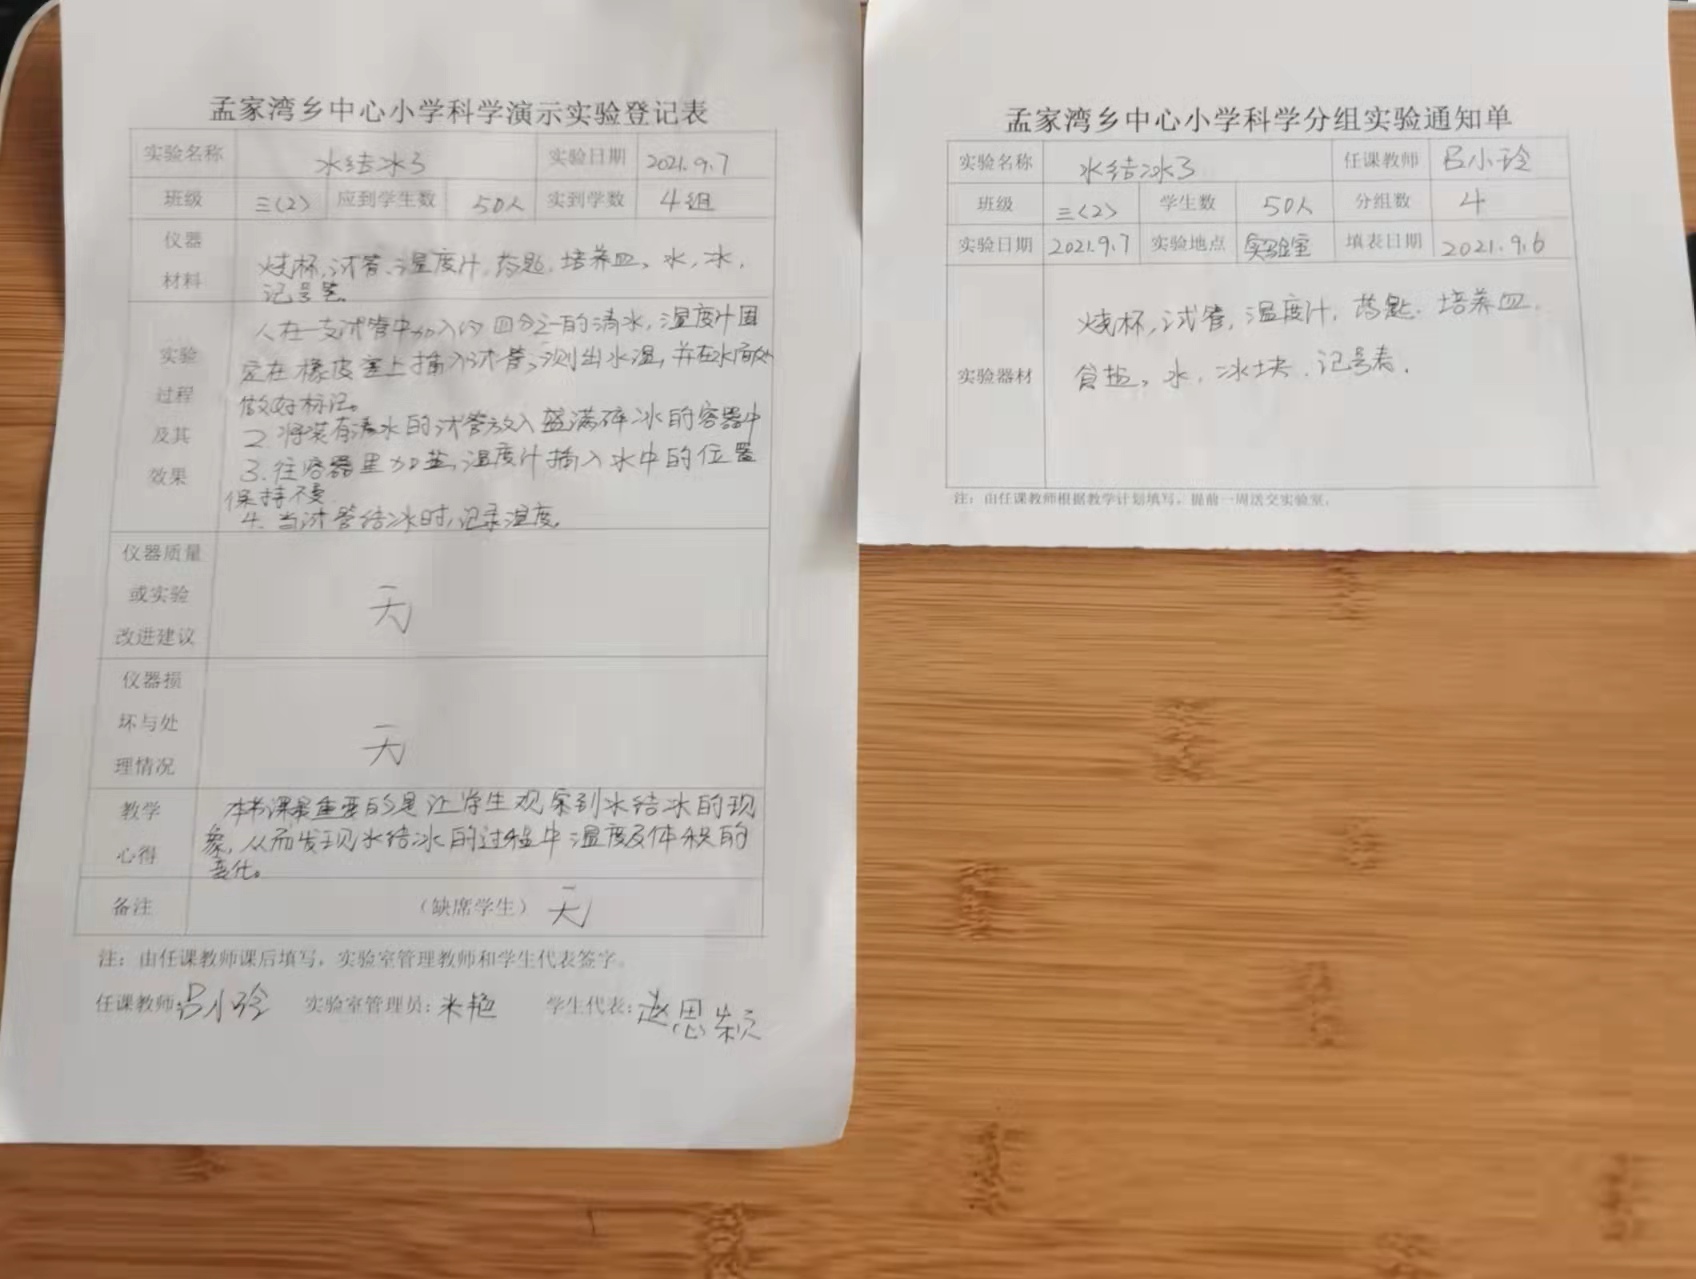 孟家湾乡中心小学科学演示实验登记表
实验名称 水结冰了 实验日期 2021.9.7
班级 三(2) 应到学生数 50人 实到学数 4组
仪器
材料
烧杯,试管,温度计,药匙,培养皿、水,冰,
记号笔
实验
过程
及其
效果
在一支试管中加入约四分之一的清水,温度计固
定在橡皮塞上插入试管,测出水温,并在水面处
做好标记。
2.将装有清水的试管放入盛满碎冰的容器中
3.往容器里加盐,温度计插入水中的位置
保持不变
4.当试管结冰时,记录温度。
仪器质量
或实验
改进建议
无
仪器损
坏与处
理情况
无
教学
心得
本节课最重要的是让学生观察到水结冰的现
象,从而发现水结冰的过程中温度及体积的
变化。
备注 (缺席学生) 无
注:由任课教师课后填写,实验室管理教师和学生代表签字。
任课教师:吕小玲 实验室管理员:米艳 学生代表:赵思颖
孟家湾乡中心小学科学分组实验通知单
实验名称 水结冰了 任课教师 吕小玲
班级 三(2) 学生数 50人 分组数 4
实验日期 2021.9.7 实验地点 实验室 填表日期 2021.9.6
实验器材
烧杯,试管,温度计,药匙.培养皿.
食盐、水,冰块.记号
注:由任课教师根据教学计划填写,提前一周送交实验室。